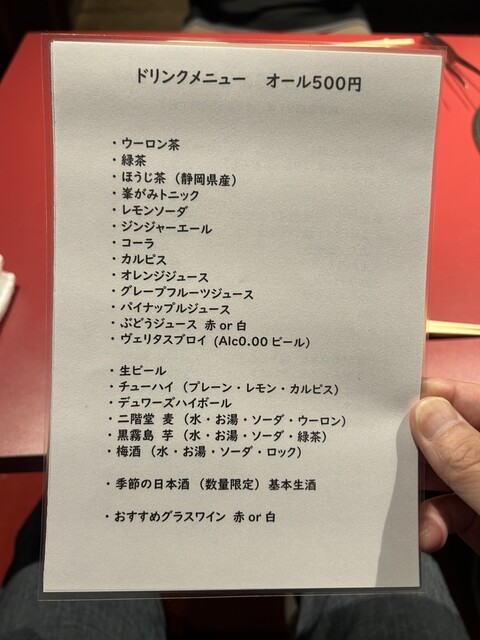 ドリンクメニュー オール500円
・ウーロン茶
・緑茶
・ほうじ茶（静岡県産）
・峯がみトニック
・レモンソーダ
・ジンジャーエール
・コーラ
・カルピス
・オレンジジュース
・グレープフルーツジュース
・パイナップルジュース
・ぶどうジュース 赤 or 白
・ヴェリタスブロイ (Alc0.00 ビール)
・生ビール
・チューハイ（プレーン・レモン・カルピス）
・デュワーズハイボール
・二階堂 麦（水・お湯・ソーダ・ウーロン）
・黒霧島 芋（水・お湯・ソーダ・緑茶）
・梅酒（水・お湯・ソーダ・ロック）
・季節の日本酒（数量限定）基本生酒
・おすすめグラスワイン 赤 or 白